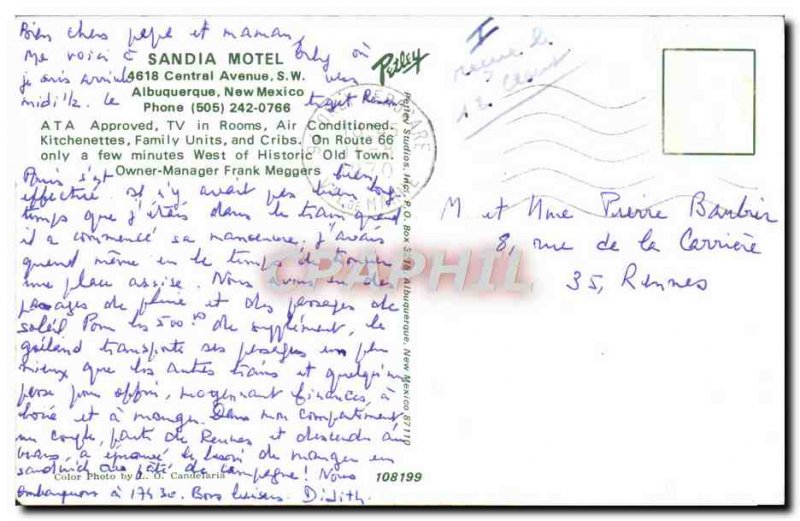 Bien chers pépé et maman,
Me voici à Orly où
je suis arrivée vers
midi 1/2. Le trajet Rennes
SANDIA MOTEL
4618 Central Avenue, S.W.
Albuquerque, New Mexico
Phone (505) 242-0766
ATA Approved, TV in Rooms, Air Conditioned.
Kitchenettes, Family Units, and Cribs. On Route 66
only a few minutes West of Historic Old Town.
Owner-Manager Frank Meggers
Paris s'est bien
effectué. Il n'y avait pas bien long
temps que j'étais dans le train quand
il a commencé sa manoeuvre, j'avais
quand même eu le temps de trouver
une place assise. Nous avons eu des
passages de pluie et des passages de
soleil. Pour les 500 de supplément, le
goéland transporte ses passagers un peu
mieux que les autres trains et quelqu'un
passe pour offrir, moyennant finances, à
boire et à manger. Dans mon compartiment
un couple, parti de Rennes et descendu au
Mans, a éprouvé le besoin de manger un
sandwich au pâté de campagne! Nous
embarquons à 17h30. Bons baisers. Didith.
Color Photo by L. O. Candelaria
108199
Petley
Petley Studios, Inc., P.O. Box Albuquerque, New Mexico 87110
M et Mme Pierre Barbier
8, rue de la Carrière
35, Rennes
CPAPHIL